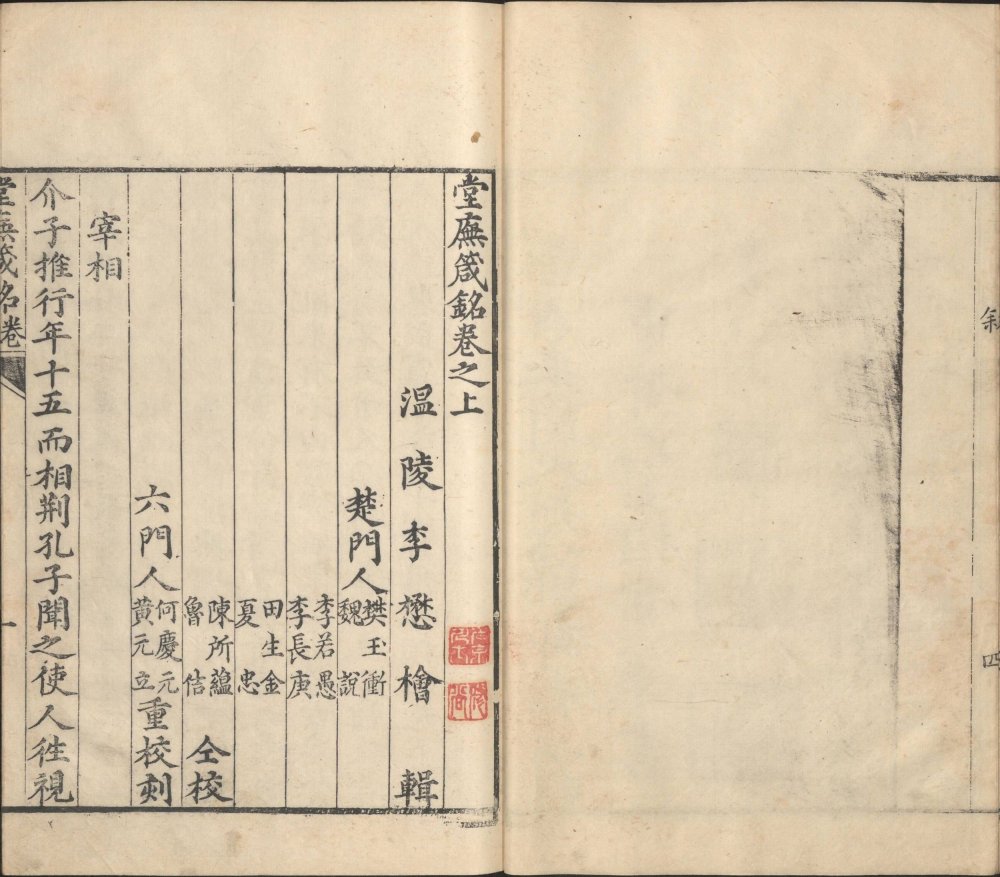 叙
四
堂廡箴銘卷之上
溫陵李懋檜輯
楚門人樊玉衝
魏說
李若愚
李長庚
田生金
夏忠
陳所蘊
魯佶
仝校
六門人何慶元
黃元立
重校刻
宰相
介子推行年十五而相荆孔子聞之使人徃視
堂廡箴名卷
一